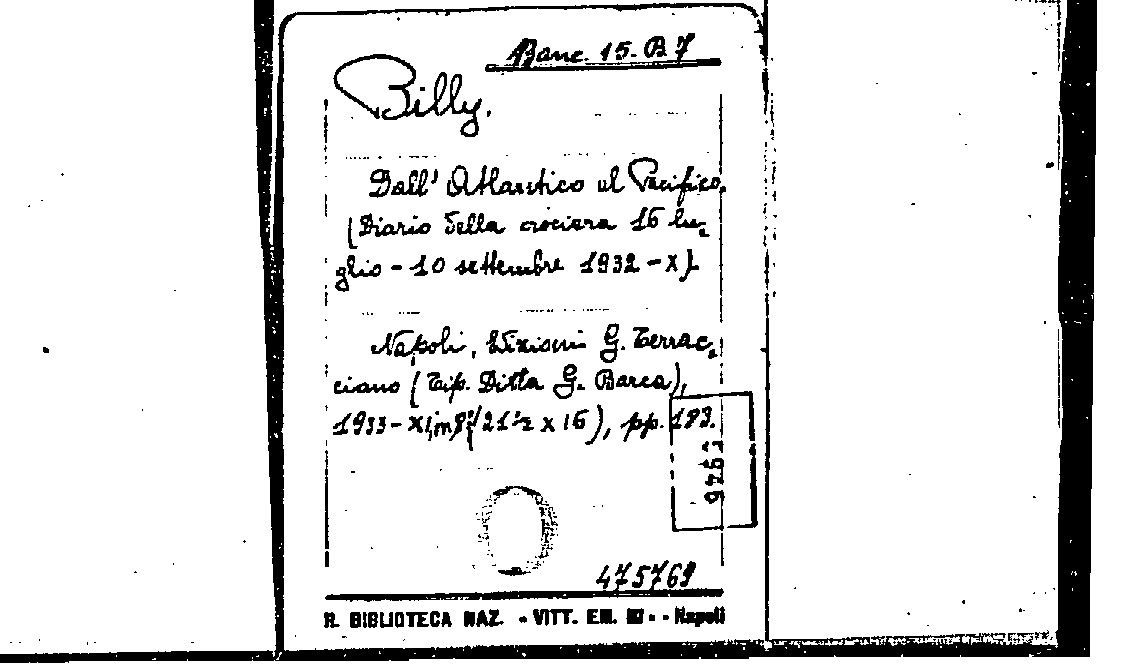 Banc. 15. B 7
Billy.
Dall' Atlantico al Pacifico.
(Diario della crociera 16 lu=
glio - 10 settembre 1932 - X).
Napoli, Edizioni G. Terrac=
ciano (Tip. Ditta G. Barca),
1933 - XI, in 8° (21 ½ x 16), pp. 193.
475769
R. BIBLIOTECA NAZ. - VITT. EM. III - - Napoli